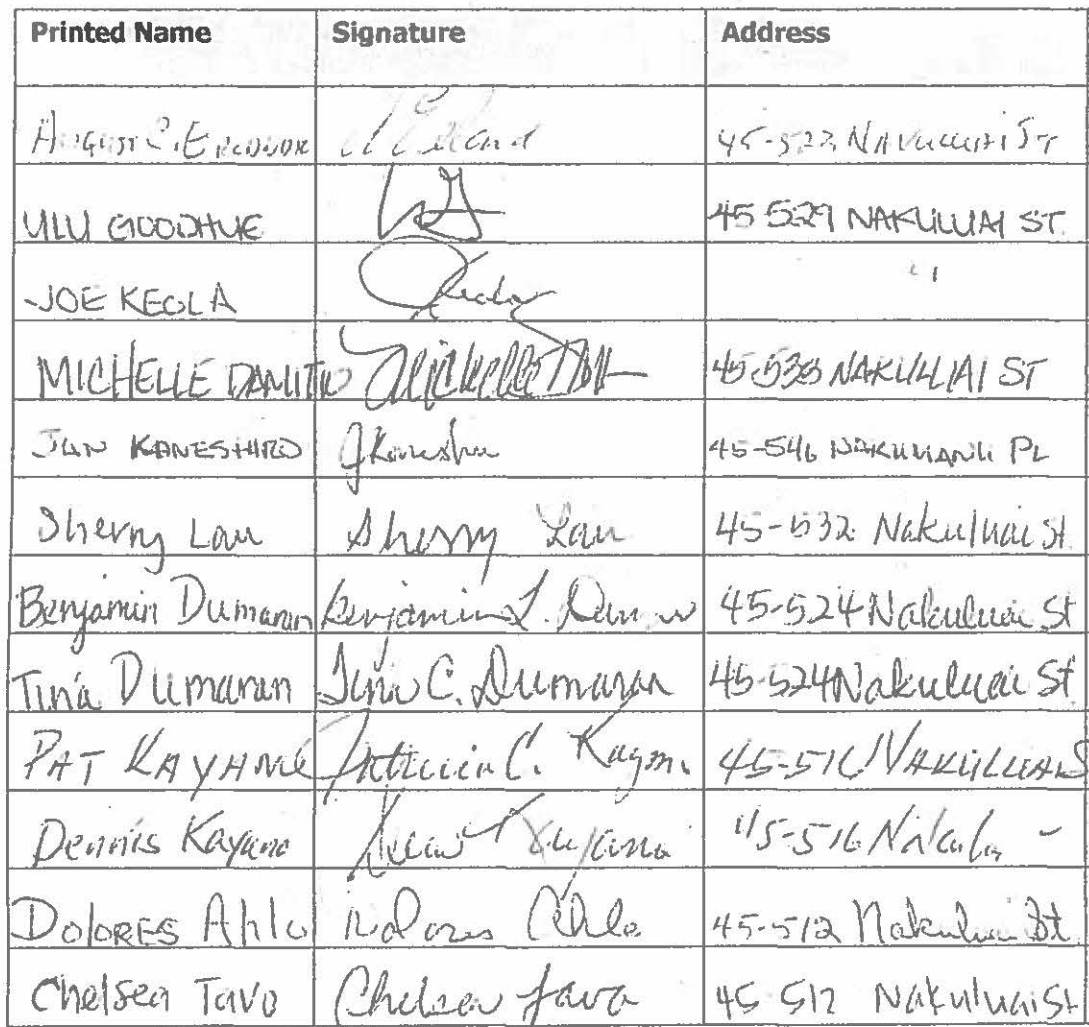 Printed Name Signature Address
August C. 45-523 Nakuluai St
ULU GOODHUE 45 529 NAKULUAI ST.
JOE KEOLA "
MICHELLE DAMITIO Michelle 45-533 NAKULUAI ST
JAN KANESHIRO JKaneshiro 45-546 NAKULUAI PL
Sherry Lau Sherry Lau 45-532 Nakuluai St.
Benjamin Dumaran Benjamin L. 45-524 Nakuluai St
Tina Dumaran Tina C. Dumaran 45-524 Nakuluai St.
PAT KAYANO Patricia C. 45-516 NAKULUAI S
Dennis Kayano Kayano 45-516 Nakulu
DOLORES Ahlo Dolores Ahlo 45-512 Nakuluai St
Chelsea Tavo Chelsea Tavo 45 512 Nakuluai St